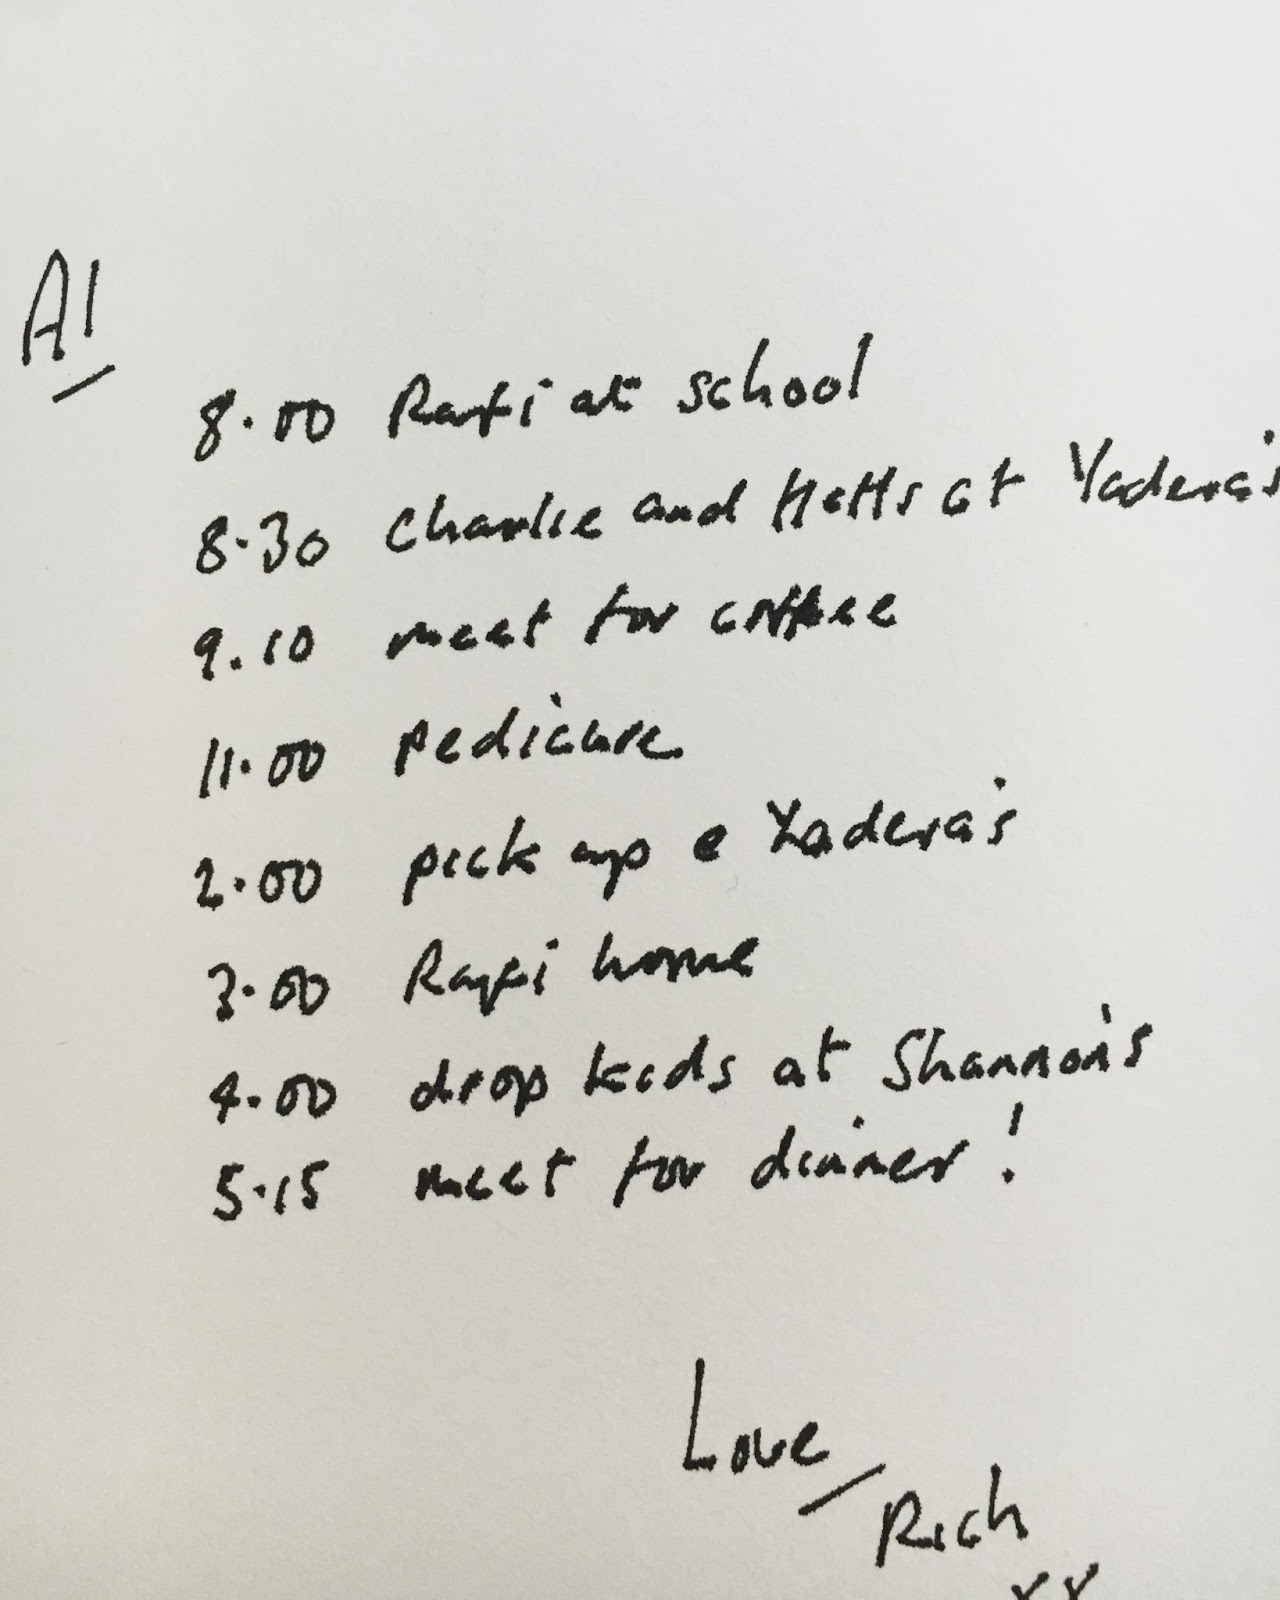 Al
8.00 Rafi at school
8.30 Charlie and Hetts at Yadera's
9.10 meet for coffee
11.00 pedicure
2.00 pick up @ Yadera's
3.00 Rafi home
4.00 drop kids at Shannon's
5.15 meet for dinner!
Love
Rich
xx